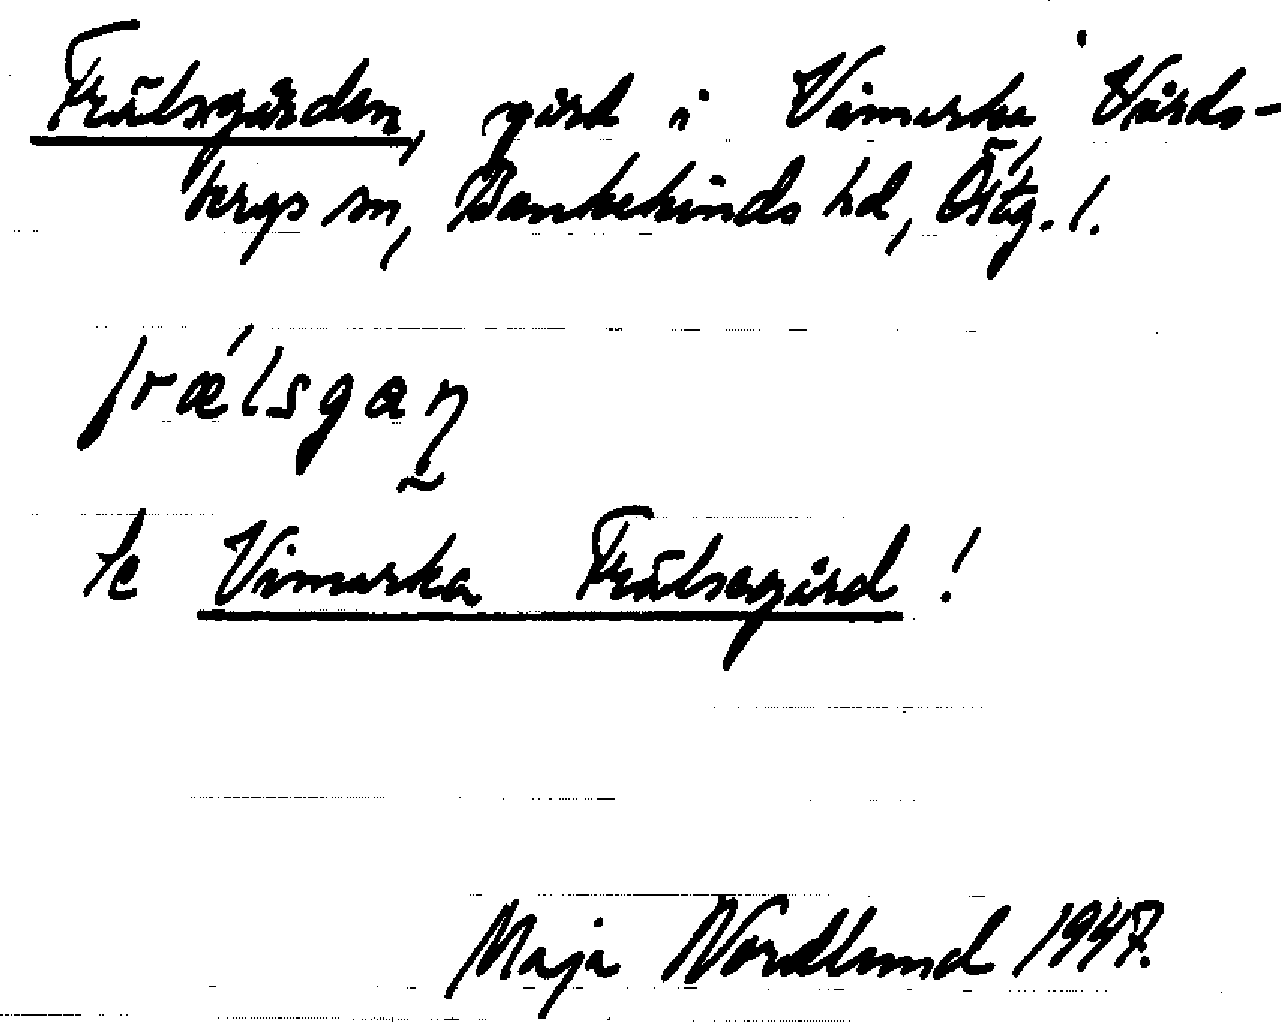 Frälsgården, gård i Vimarka, Vårds-
bergs sn, Bankekinds hd, Östg. l.
frǽlsgaṇ
Se Vimarka Frälsegård!
Maja Nordlund 1947.